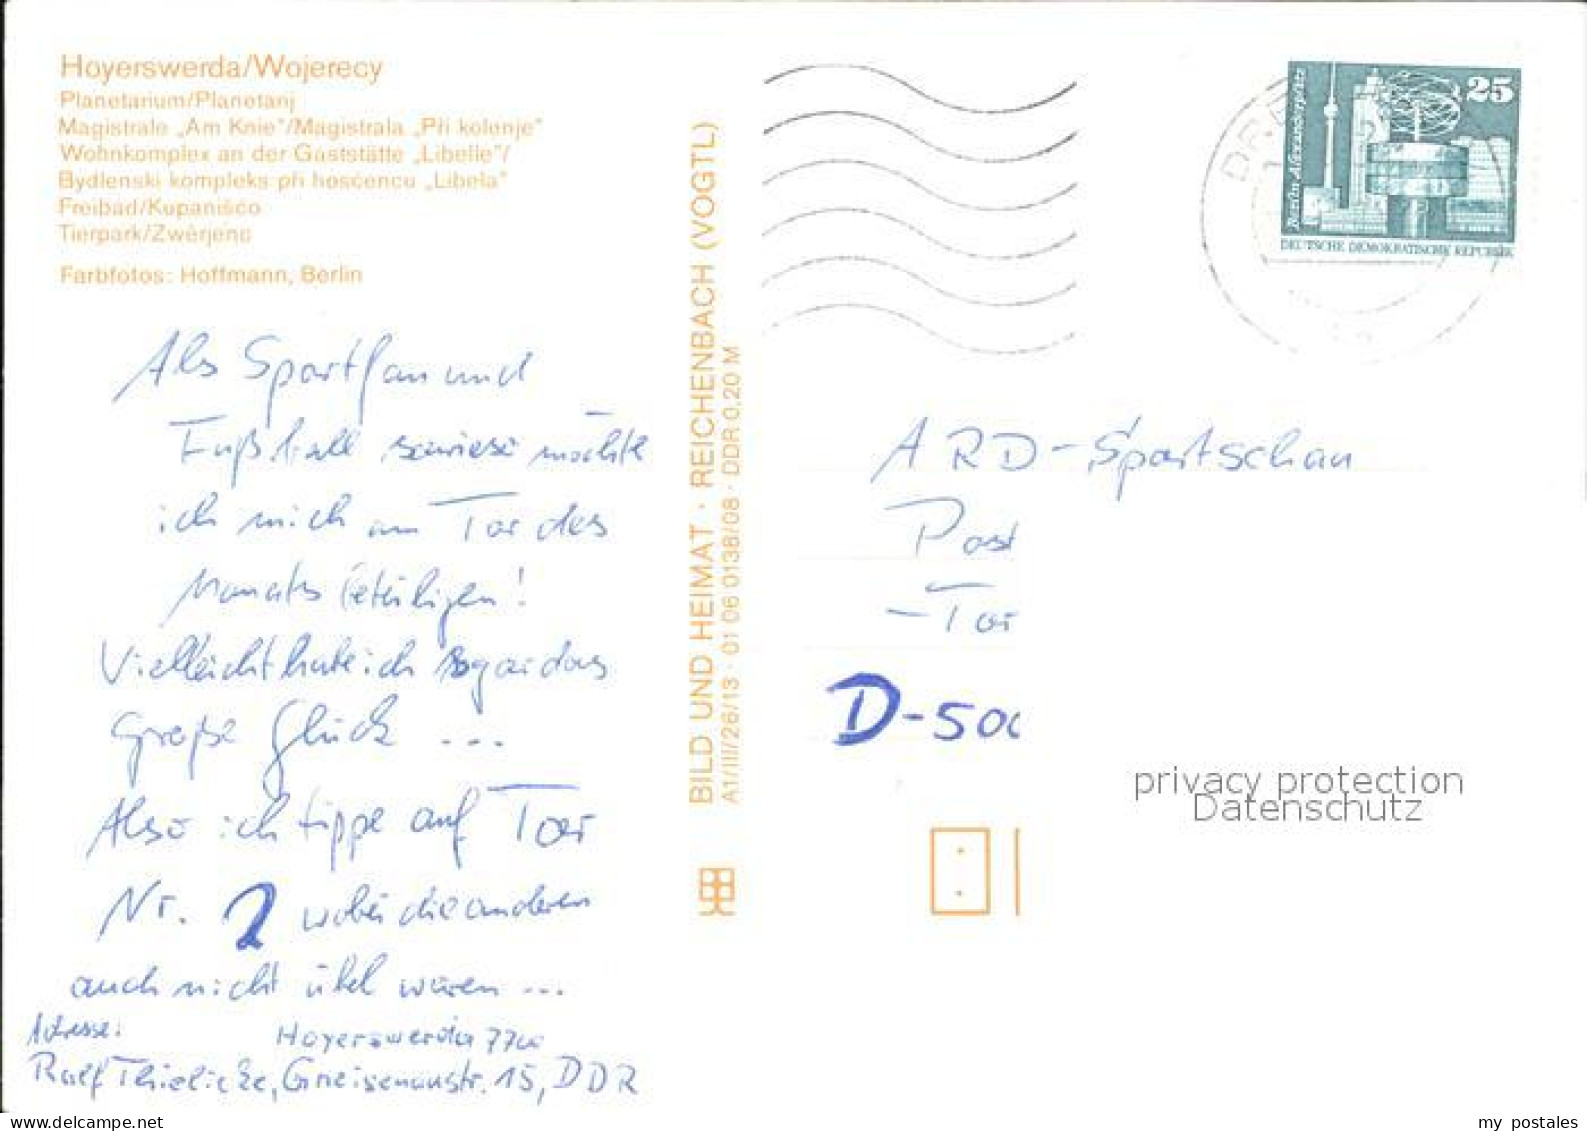 Hoyerswerda/Wojerecy
Planetarium/Planetarij
Magistrale „Am Knie"/Magistrala „Při kolenje"
Wohnkomplex an der Gaststätte „Libelle"/
Bydlenski kompleks při hosćencu „Libela"
Freibad/Kupanišćo
Tierpark/Zwěrjenc
Farbfotos: Hoffmann, Berlin
Als Sportfan und
Fußball sowieso möchte
ich mich am Tor des
Monats beteiligen!
Vielleicht habe ich sogar das
große Glück ...
Also ich tippe auf Tor
Nr. 2 wobei die anderen
auch nicht übel waren ...
Adresse: Hoyerswerda 7700
Ralf Thielicke, Gneisenaustr. 15, DDR
BILD UND HEIMAT · REICHENBACH (VOGTL)
A1/III/26/13 · 01 06 0138/08 · DDR 0,20 M
25
Berlin-Alexanderplatz
DEUTSCHE DEMOKRATISCHE REPUBLIK
ARD-Sportschau
Post
-Tor
D-500
privacy protection
Datenschutz
my postales
www.delcampe.net